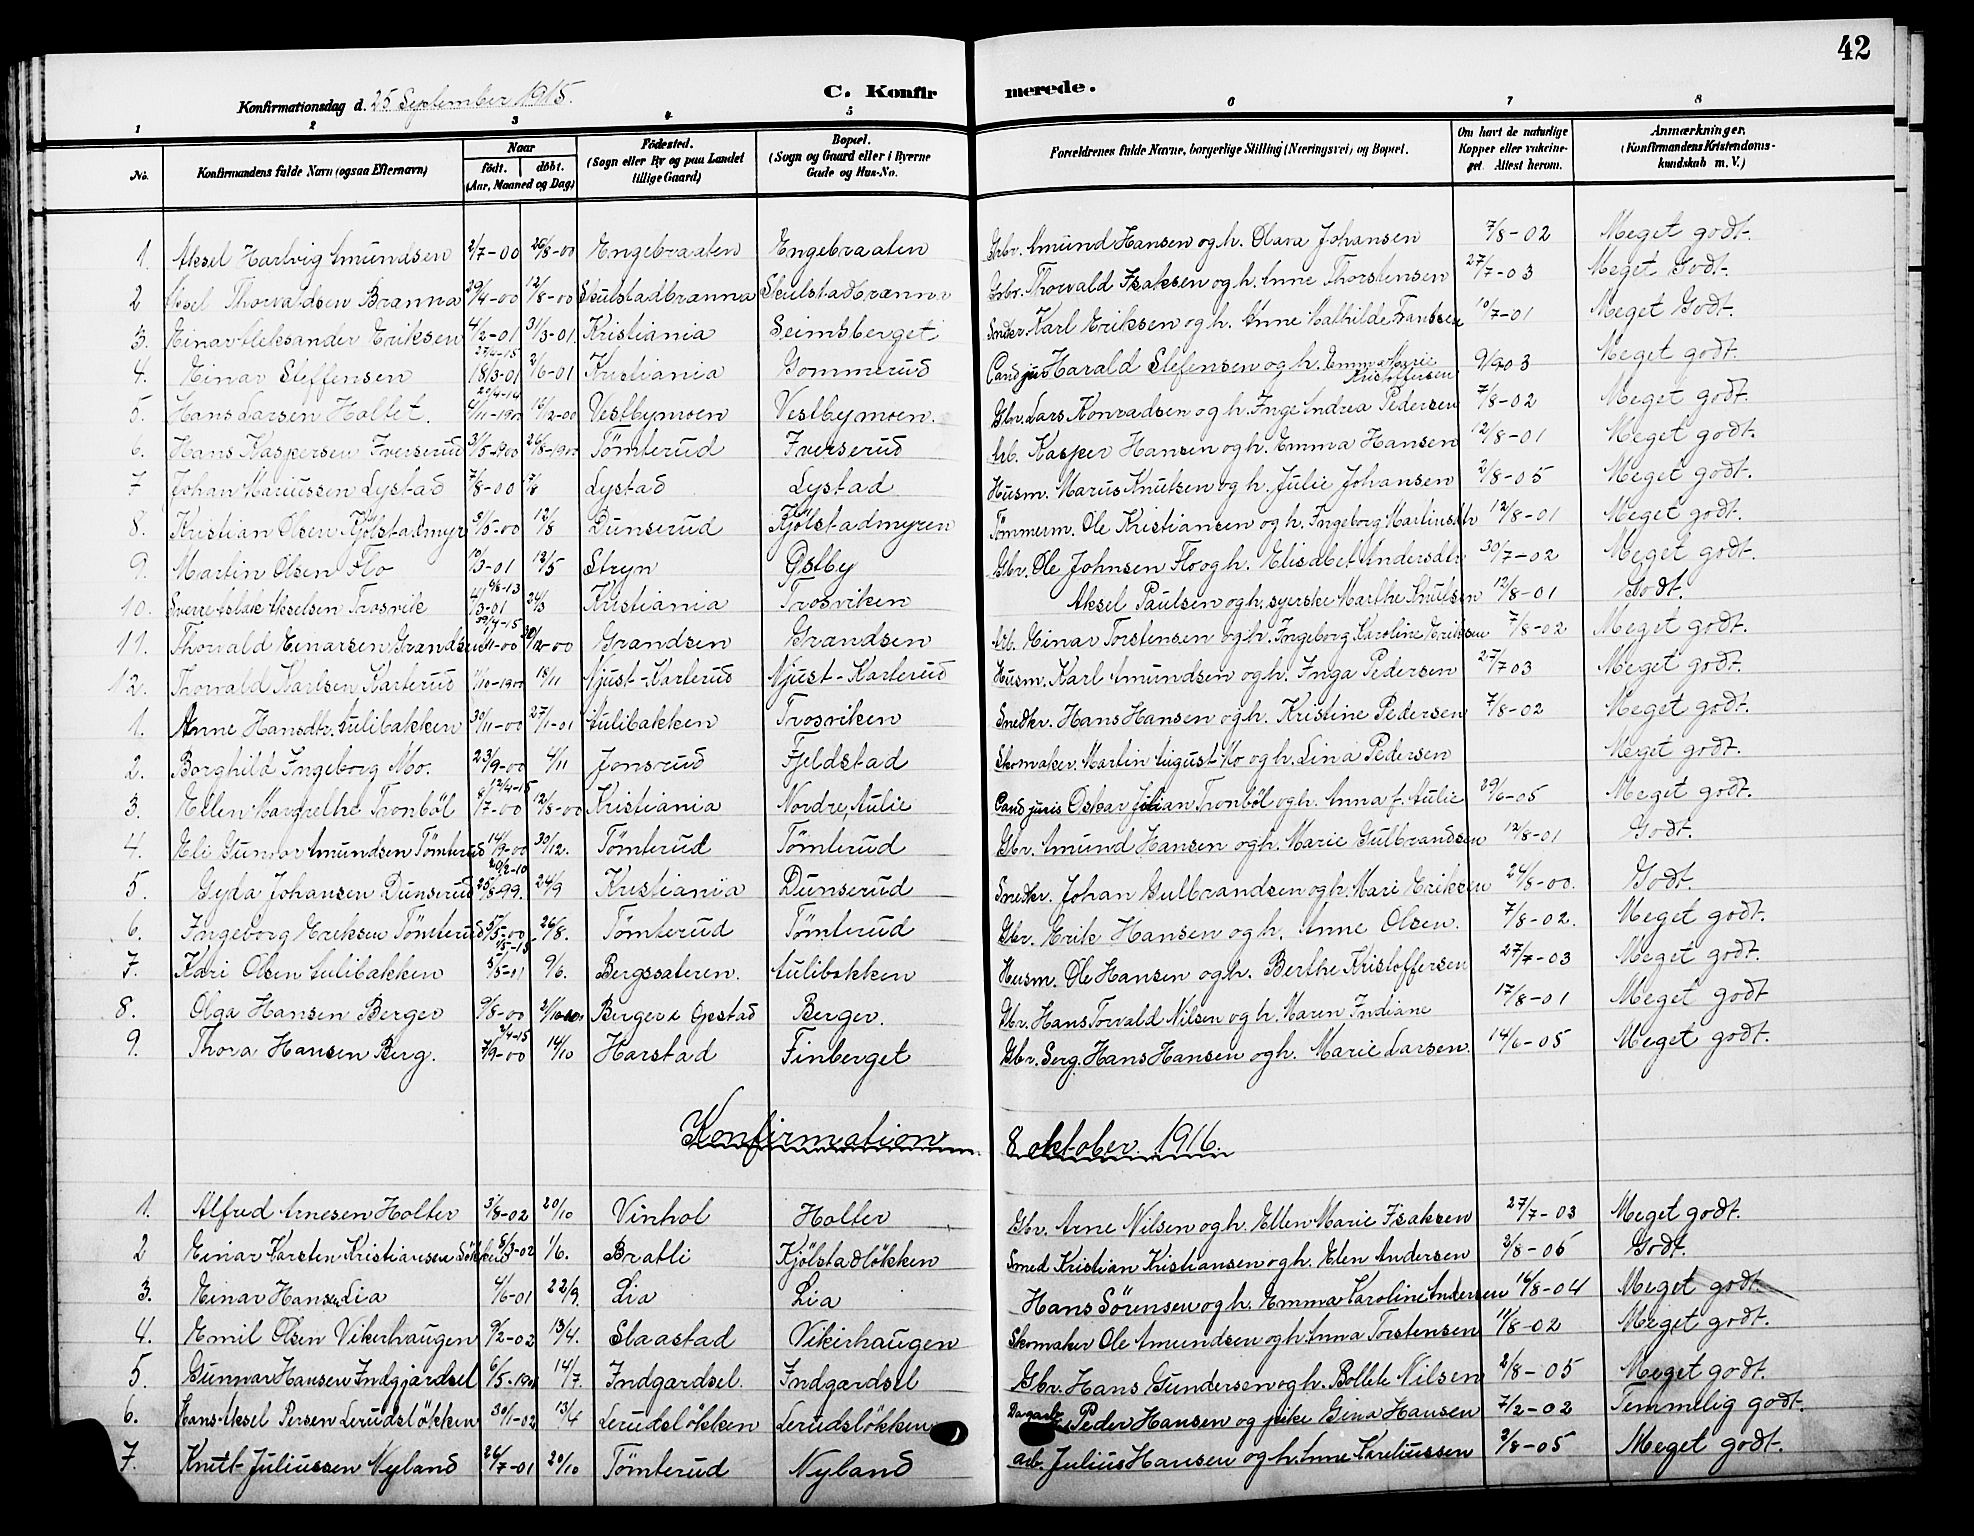 42
Konfirmationsdag d. 25 September 1915. C. Konfirmerede.
1 2 3 4 5 6 7 8
No. Konfirmandens fulde Navn (ogsaa Efternavn) Naar födt. döbt. (Aar, Maaned og Dag) Födested. (Sogn eller By og paa Landet tillige Gaard) Bopæl. (Sogn og Gaard eller i Byerne Gade og Hus-No. Forældrenes fulde Navne, borgerlige Stilling (Næringsvei) og Bopæl. Om havt de naturlige Kopper eller vakcineret. Attest herom. Anmærkninger. (Konfirmandens Kristendomskundskab m. V.)
1. Aksel Hartvig Amundsen 2/7-00 26/8-00 Engebraaten Engebraaten Gbr. Amund Hansen og h. Olara Johansen 7/8-02 Meget godt.
2 Aksel Thorvaldsen Branna 29/4-00 12/8-00 Skulstadbranna Skulstadbranna Gbr. Thorvald Isaksen og h. Anne Thorstensen 27/7-03 Meget Godt.
3. Einar Aleksander Eriksen 4/2-01 31/3-01 Kristiania Seimsberget Snedkr. Karl Eriksen og h. Anne Mathilde Frantsen 10/7-01 Meget Godt.
4. Einar Steffensen 27/4-15 18/3-01 2/6-01 Kristiania Gommerud Cand jur Harald Stefensen og h. Emma Marie Kristoffersen 9/9 03 Meget godt.
5. Hans Larsen Holtet. 20/4-14 4/11-1900 16/12-00 Vestbymoen Vestbymoen. Gbr. Lars Konradsen og h. Inge Andrea Pedersen 7/8-02 Meget godt.
6. Hans Kaspersen Iverserud 31/5-1900 26/8-1900 Tömterud Iverserud Arb. Kasper Hansen og h. Emma Hansen 12/8-01 Meget godt.
7 Johan Mariussen Lystad 7/8-00 Lystad Lystad Husm. Marus Knutsen og h. Julie Johansen 2/8-05 Meget godt.
8. Kristian Olsen Kjölstadmyr 3/5-00 12/8 Dunserud Kjölstadmyren Tömmerm. Ole Kristiansen og h. Ingeborg Martinsdtr 12/8-01 Meget godt.
9. Martin Olsen Flo 10/3-01 12/5 Stryn Østby Gbr. Ole Johnsen Flo og h. Elisabet Andersdtr 30/7-02 Meget godt.
10. Sverre Aslak Akselsen Trosvik 6/6-13 4/3-01 24/3 Kristiania Trosviken Aksel Paulsen og h. syerske Marthe Knutsen 12/8-01 Godt.
11. Thorvald Einarsen Grandsen 29/4-15 1/11-00 30/12-00 Grandsen Grandsen Arb. Einar Torstensen og h. Ingeborg Karoline Eriksen 7/8-02 Meget godt.
12. Thorvald Karlsen Karterud 1/10-1900 18/11 Njust-Karterud Njust-Karterud Husm. Karl Amundsen og h. Inga Pedersen 27/7 03 Meget godt.
1. Anne Hansdtr. Aulibakken 30/11-00 27/1-01 Aulibakken Trosviken Snedkr. Hans Hansen og h. Kristine Pedersen 7/8-02 Meget godt.
2. Borghild Ingeborg Mo. 23/9-00 4/11 Jonsrud Fjeldstad Skomaker. Martin August Mo og h. Lina Pedersen Meget godt.
3. Ellen Margrethe Tronböl 12/4-15 8/7-00 12/8-00 Kristiania Nordre, Aulie Cand juris Oskar Julian Tronböl og h. Anna f. Aulie 29/6-05 Meget godt.
4. Eli Gunvor Amundsen Tömterud 14/9-00 30/12. Tömterud Tömterud Gbr. Amund Hansen og h. Marie Gulbrandsen 12/8-01 Godt.
5. Gyda Johansen Dunserud 20/2-10 25/8-99. 24/9 Kristiania Dunserud Snedkr. Johan Gulbrandsen og h. Mari Eriksen 24/8-00. Godt.
6. Ingeborg Eriksen Tömterud 5/5-00 26/8. Tömterud Tömterud Gbr. Erik Hansen og h. Anne Olsen. 7/8-02. Meget godt.
7. Kari Olsen Aulibakken 5/5-01 9/6. Bergssateren. Aulibakken Husm. Ole Hansen og h. Berthe Kristoffersen 27/7-03 Meget godt.
8. Olga Hansen Berger 9/8-00 21/10-00 Berger i Opstad Berger. Gbr. Hans Torvald Nilsen og h. Maren Indiane 17/8-01 Meget godt
9. Thora Hansen Berg. 2/4-15 7/9-00 14/10 Harstad Finberget Gbr. Serg. Hans Hansen og h. Marie Larsen. 14/6-05 Meget godt.
Konfirmation 8 oktober. 1916.
1. Alfred Arnesen Holter 31/8-02 20/10 Vinhol Holter Gbr. Arne Nilsen og h. Ellen Marie Isaksen 27/7-03 Meget godt.
2 Einar Karsten Kristiansen Lökken 5/3-02 1/6. Bratli Kjölstadlökken Smed Kristian Kristiansen og h. Elen Andersen 3/8-05 Godt.
3. Einar Hansen Lia 4/6-01 22/9. Lia Lia Hans Sörensen og h. Emma Karoline Andersen 16/8-04 Meget godt.
4. Emil Olsen Vikerhaugen 9/2-02 13/4. Slaastad Vikirhaugen Skomaker Ole Amundsen og h. Anna Torstensen 11/8-02 Meget godt.
5. Gunnar Hansen Indgjardsel 6/5-1901 14/7. Indgardsel. Indgardsel Gbr. Hans Gundersen og h. Bollete Nilsen 2/8-05 Meget godt.
6. Hans Aksel Persen Lerudslökken 30/1-02 13/4 Lerudslökken Lerudslökken Dagarb. Peder Hansen og pike Gina Hansen 7/2-02 Temmelig godt.
7. Knut Juliussen Nyland 26/7-01 20/10 Tömterud Nyland arb. Julius Hansen og h. Anne Kareliussen 3/8-05 Meget godt.